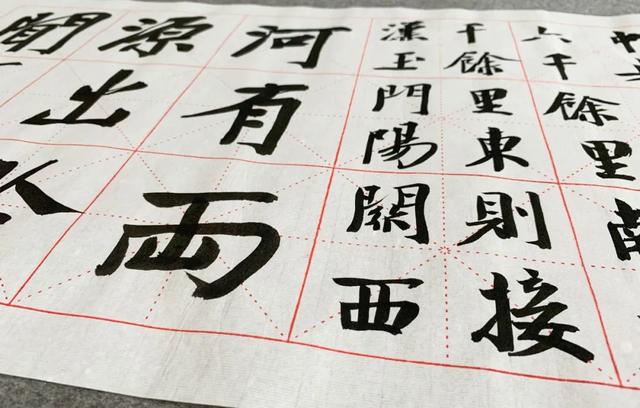 六千餘里南
千餘里東則接
漢玉門陽關西
河有兩
源出